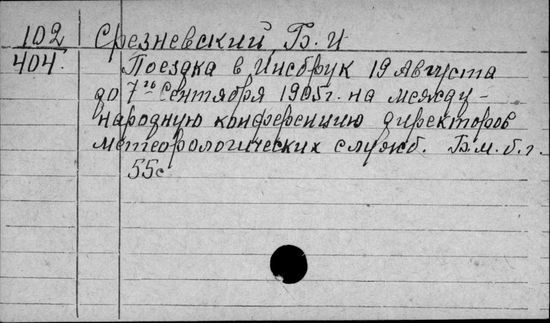 102 Срезневский, Б. И
404. Поездка в Инсбрук 19 Августа
до 7го Сентября 1905г. на между-
народную конференцию директоров
метеорологических служб. Б.м.б.г.
55с